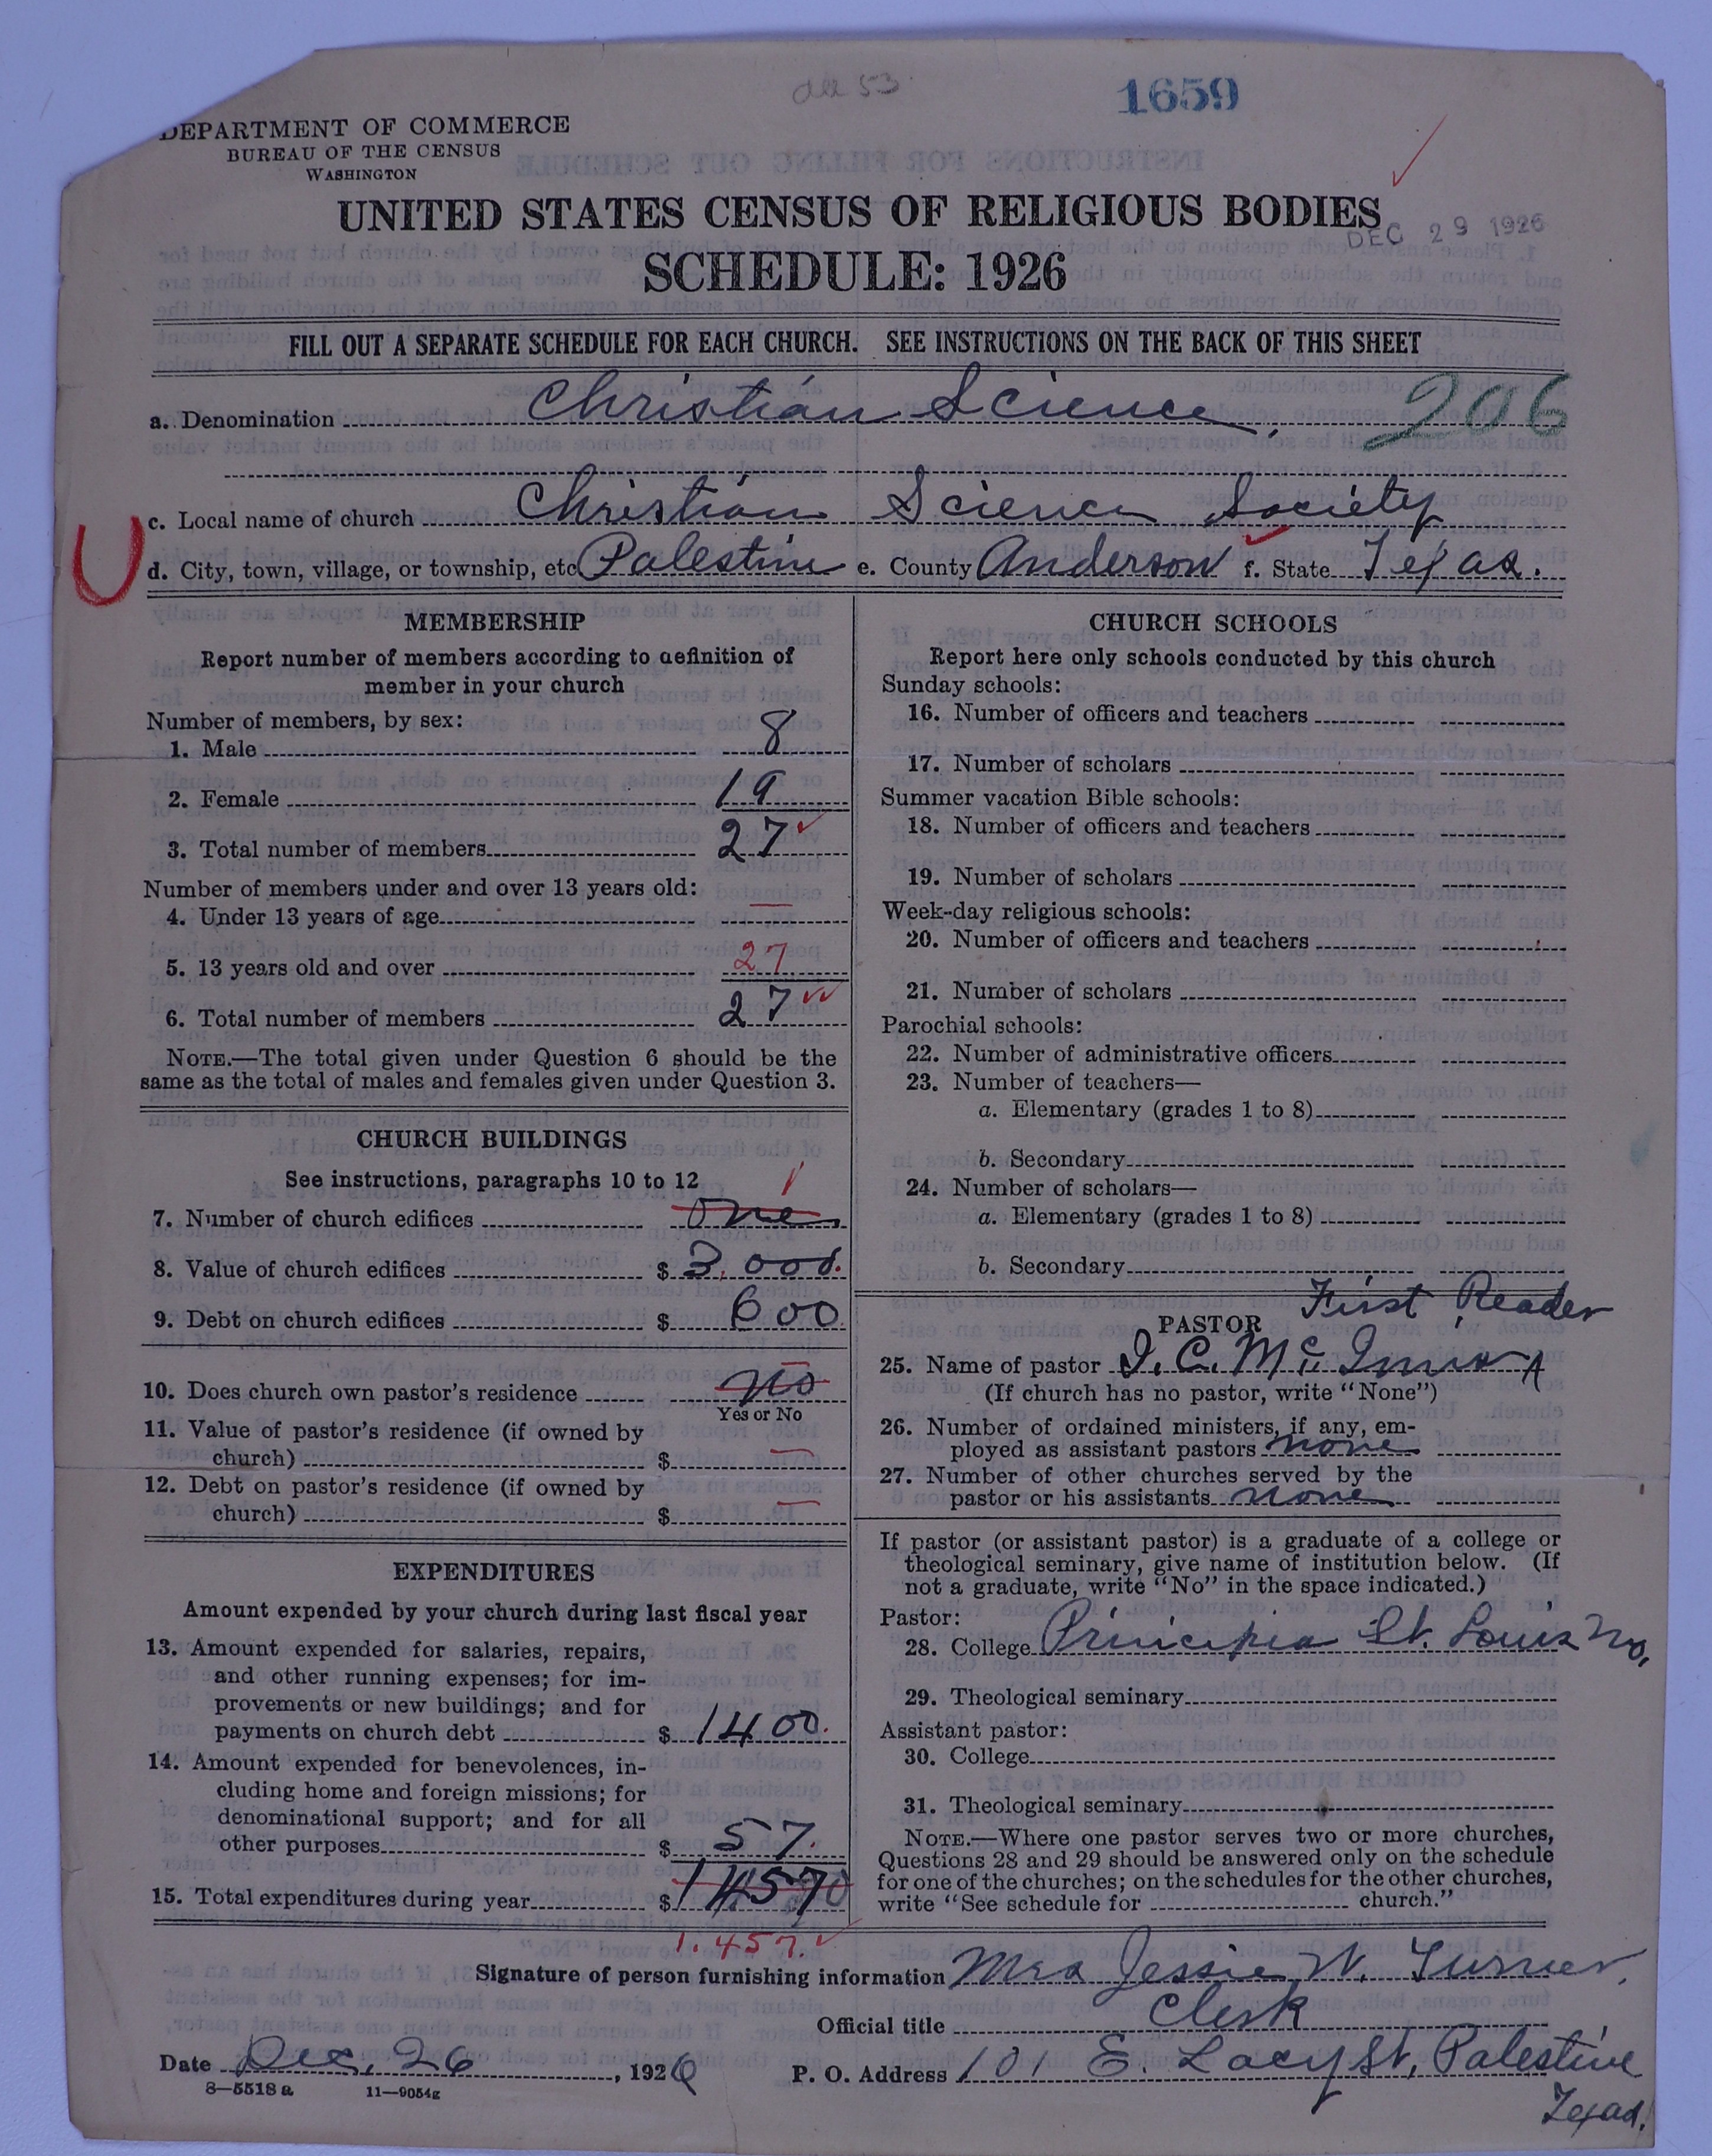 all 53
1659
DEPARTMENT OF COMMERCE
BUREAU OF THE CENSUS
WASHINGTON
UNITED STATES CENSUS OF RELIGIOUS BODIES
DEC 29 1926
SCHEDULE: 1926
FILL OUT A SEPARATE SCHEDULE FOR EACH CHURCH. SEE INSTRUCTIONS ON THE BACK OF THIS SHEET
a. Denomination Christian Science. 206
c. Local name of church Christian Science Society
d. City, town, village, or township, etc Palestine e. County Anderson f. State Texas.
MEMBERSHIP
Report number of members according to definition of
member in your church
Number of members, by sex:
1. Male 8
2. Female 19
3. Total number of members 27
Number of members under and over 13 years old:
4. Under 13 years of age —
5. 13 years old and over 27
6. Total number of members 27
NOTE.—The total given under Question 6 should be the
same as the total of males and females given under Question 3.
CHURCH BUILDINGS
See instructions, paragraphs 10 to 12
1
7. Number of church edifices One
8. Value of church edifices $ 3,000.
9. Debt on church edifices $ 600
10. Does church own pastor's residence No
Yes or No
11. Value of pastor's residence (if owned by
church) $ —
12. Debt on pastor's residence (if owned by
church) $ —
EXPENDITURES
Amount expended by your church during last fiscal year
13. Amount expended for salaries, repairs,
and other running expenses; for im-
provements or new buildings; and for
payments on church debt $ 1400.
14. Amount expended for benevolences, in-
cluding home and foreign missions; for
denominational support; and for all
other purposes $ 57.
15. Total expenditures during year $ 14570
1.457.
CHURCH SCHOOLS
Report here only schools conducted by this church
Sunday schools:
16. Number of officers and teachers
17. Number of scholars
Summer vacation Bible schools:
18. Number of officers and teachers
19. Number of scholars
Week-day religious schools:
20. Number of officers and teachers
21. Number of scholars
Parochial schools:
22. Number of administrative officers
23. Number of teachers—
a. Elementary (grades 1 to 8)
b. Secondary
24. Number of scholars—
a. Elementary (grades 1 to 8)
b. Secondary
First Reader
PASTOR
25. Name of pastor
(If church has no pastor, write "None")
26. Number of ordained ministers, if any, em-
ployed as assistant pastors none
27. Number of other churches served by the
pastor or his assistants none
If pastor (or assistant pastor) is a graduate of a college or
theological seminary, give name of institution below. (If
not a graduate, write "No" in the space indicated.)
Pastor:
28. College Principia St. Louis Mo.
29. Theological seminary
Assistant pastor:
30. College
31. Theological seminary
NOTE.—Where one pastor serves two or more churches,
Questions 28 and 29 should be answered only on the schedule
for one of the churches; on the schedules for the other churches,
write "See schedule for church."
Signature of person furnishing information Mrs Jessie W. Turner.
Official title Clerk
Date Dec. 26, 1926 P. O. Address 101 E. Lacy St, Palestine
Texas.
8—5518 a 11—9054g